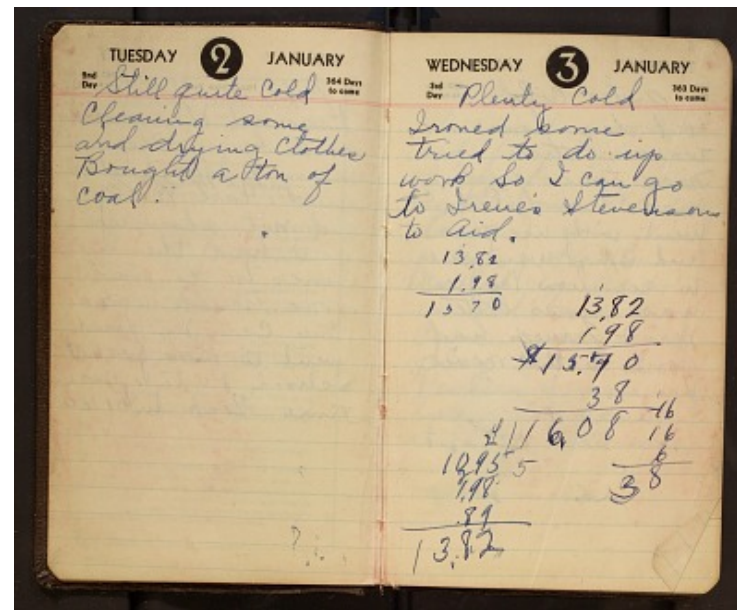 TUESDAY 2 JANUARY
2nd Day
364 Days to come
Still quite Cold
Cleaning some
and drying Clothes
Bought a ton of
coal.
WEDNESDAY 3 JANUARY
3rd Day
363 Days to come
Plenty Cold
Ironed some
tried to do up
work So I can go
to Irene's Stevensons
to Aid.
13,82
1.98
1570
13,82
198
38
16
16
6
38
1608
10,95
1,98
.89
13.82